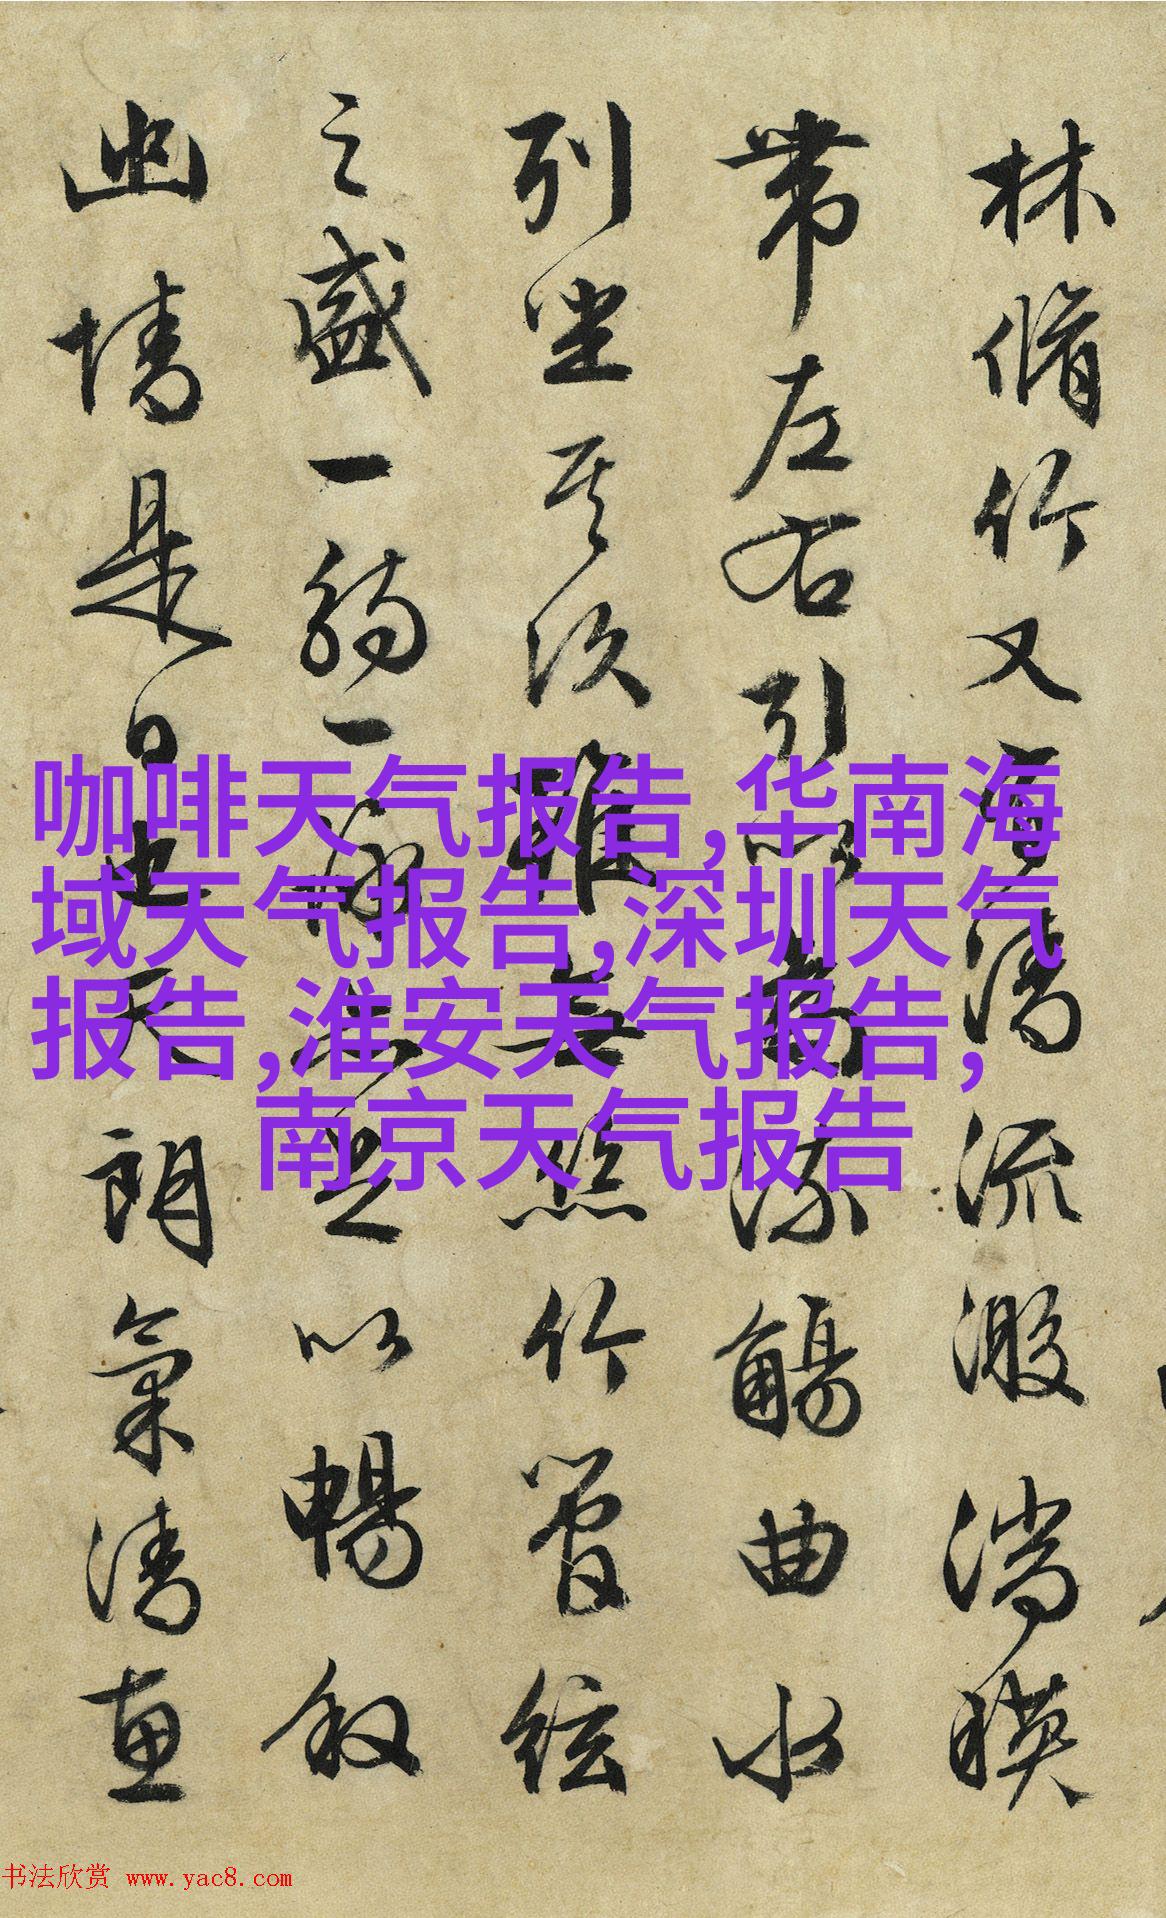 林脩竹又有清流激湍暎
帶左右引以為流觴曲水
列坐其次雖無絲竹管絃
之盛一觴一詠亦足以暢敘
幽情是日也天朗氣清惠
咖啡天气报告,华南海
域天气报告,深圳天气
报告,淮安天气报告,
南京天气报告
书法欣赏 www.yac8.com